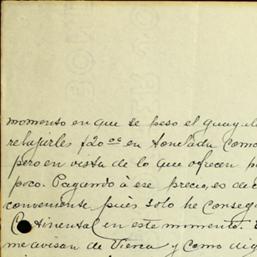 momento en que se peso el guayule
rebajirles $20.00 en tonelada como
pero en vista de lo que ofrecen p
poco. Pagando á ese precio, es de
conveniente pues solo he conseg
Continental en este momento.
me avisan de Viesca y como dig